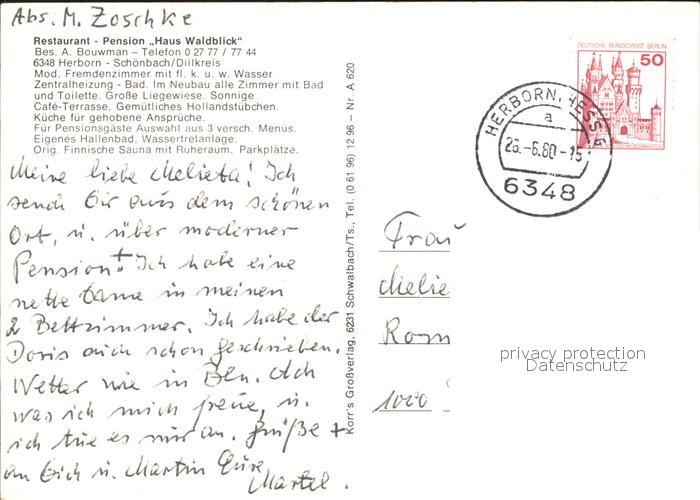 Abs. M. Zoschke
Restaurant - Pension „Haus Waldblick"
Bes. A. Bouwman – Telefon 0 27 77 / 77 44
6348 Herborn - Schönbach/Dillkreis
Mod. Fremdenzimmer mit fl. k. u. w. Wasser
Zentralheizung - Bad. Im Neubau alle Zimmer mit Bad
und Toilette. Große Liegewiese. Sonnige
Café-Terrasse. Gemütliches Hollandstübchen.
Küche für gehobene Ansprüche.
Für Pensionsgäste Auswahl aus 3 versch. Menüs.
Eigenes Hallenbad. Wassertretanlage.
Orig. Finnische Sauna mit Ruheraum. Parkplätze.
Meine liebe Melieta! Ich
send Dir aus dem schönen
Ort, u. über moderner
Pension! Ich habe eine
nette Dame in meinen
2 Bettzimmer. Ich habe der
Doris auch schon geschrieben.
Wetter wie in Bln. Ach
was ich mich freue, u.
ich tue es nur an. Grüße
an Dich u. Martin Eure
Martel.
Korr's Großverlag, 6231 Schwalbach/Ts., Tel. (0 61 96) 12 96 – Nr. A 620
DEUTSCHE BUNDESPOST BERLIN
50
HERBORN, HESS 6
a
26.-6.80-15
6348
Frau
Melie
Rom
1000
privacy protection
Datenschutz